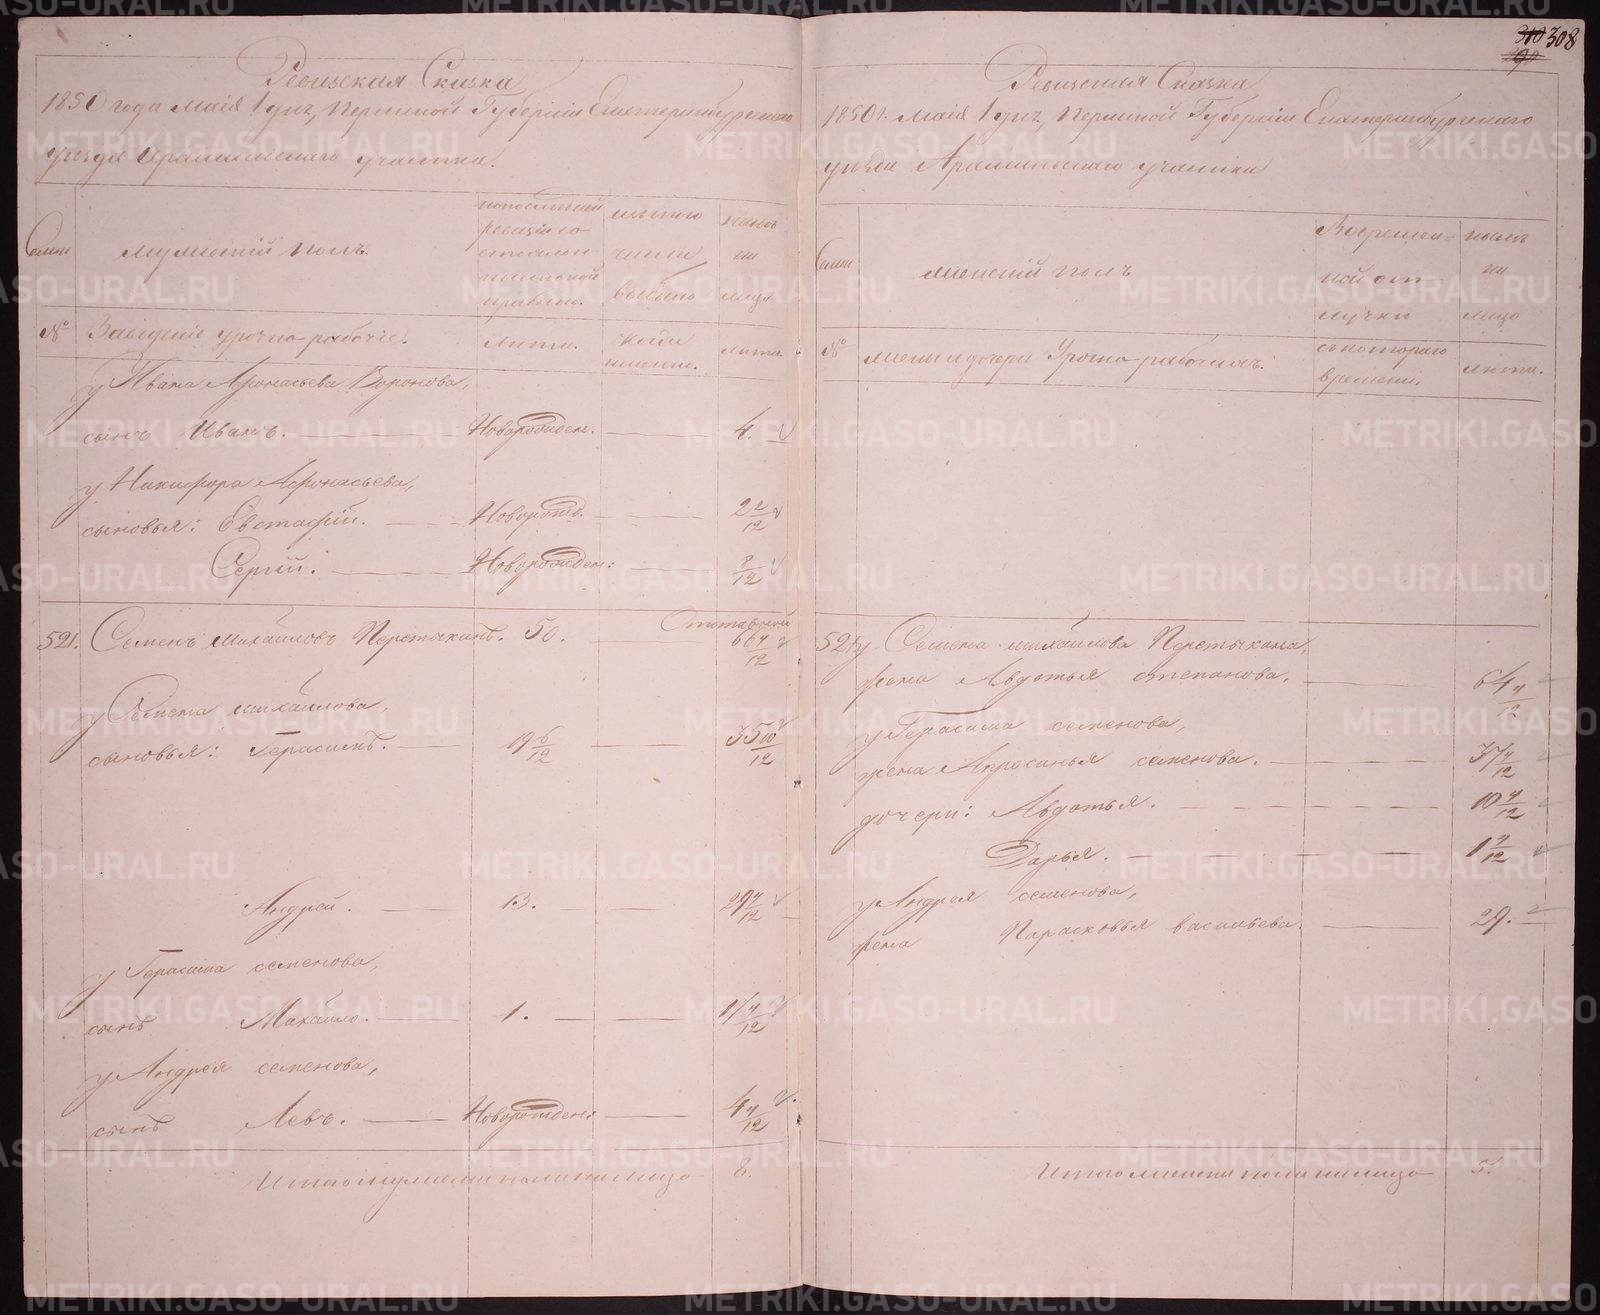 310 308
290
Ревизская Сказка
1850 года Маія 1 дня, Пермской Губерніи Екатеринбургскаго
уезда Арамильскаго участка.
Семьи
мужескій полъ.
по последней ревизіи состояло и после оной прибыло.
изъ того числа выбыло
ныне на лицо
№
Заводскіе урочно рабочіе.
лета.
когда именно.
лета.
у Ивана Афонасьева Воронова,
сынъ Иванъ. Новорожден. 4.
у Никифора Афонасьева,
сыновья: Евстафій. Новорожд. 2 2/12
Сергій. Новорожден: 8/12
521. Семенъ Михайловъ Перетыкинъ. 50. Отставной 66 4/12
у Семена Михайлова,
сыновья: Герасимъ. 19 6/12 35 10/12
Андрей. 13. 29 4/12
у Герасима Семенова,
сынъ Михайло. 1. 17 4/12
у Андрея Семенова,
сынъ Левъ. Новорожден: 4 4/12
Итого мужеска пола на лицо 8.
Ревизская Сказка
1850 г. Маія 1 дня, Пермской Губерніи Екатеринбургскаго
уезда Арамильскаго участка
Семьи
женскій полъ
Во временной отлучки
ныне на лицо
№
жены и дочери Урочно рабочихъ.
съ котораго времени.
лета.
521 у Семена Михайлова Перетыкина,
жена Авдотья Степанова. 64 4/12
у Герасима Семенова,
жена Апросинья Семенова. 37 4/12
дочери: Авдотья. 10 4/12
Дарья. 1 4/12
у Андрея Семенова,
жена Парасковья Васильева. 29.
Итого женска пола на лицо 5.
METRIKI.GASO-URAL.RU